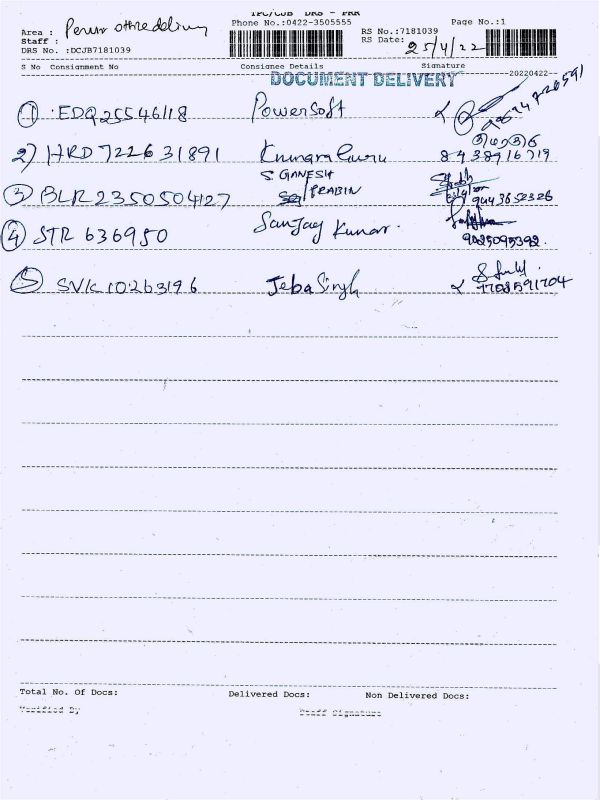 TPC/CJB DRS - PRR
Area : Perur office delivery Phone No.:0422-3505555 Page No.:1
Staff : RS No.:7181039
DRS No. :DCJB7181039 RS Date: 25/4/22
S No Consignment No Consignee Details Signature
DOCUMENT DELIVERY 20220422
① EDQ25546118 Powersoft
2) HRD722631891 Kumaraguru 8438916719
③ BLR2350504127 S. GANESH PRABIN 9443652326
④ STR 636950 Sanjay Kumar. 9025095392.
⑤ SVK10263196 Jeba Singh 7708591704
Total No. Of Docs: Delivered Docs: Non Delivered Docs:
Verified By Staff Signature